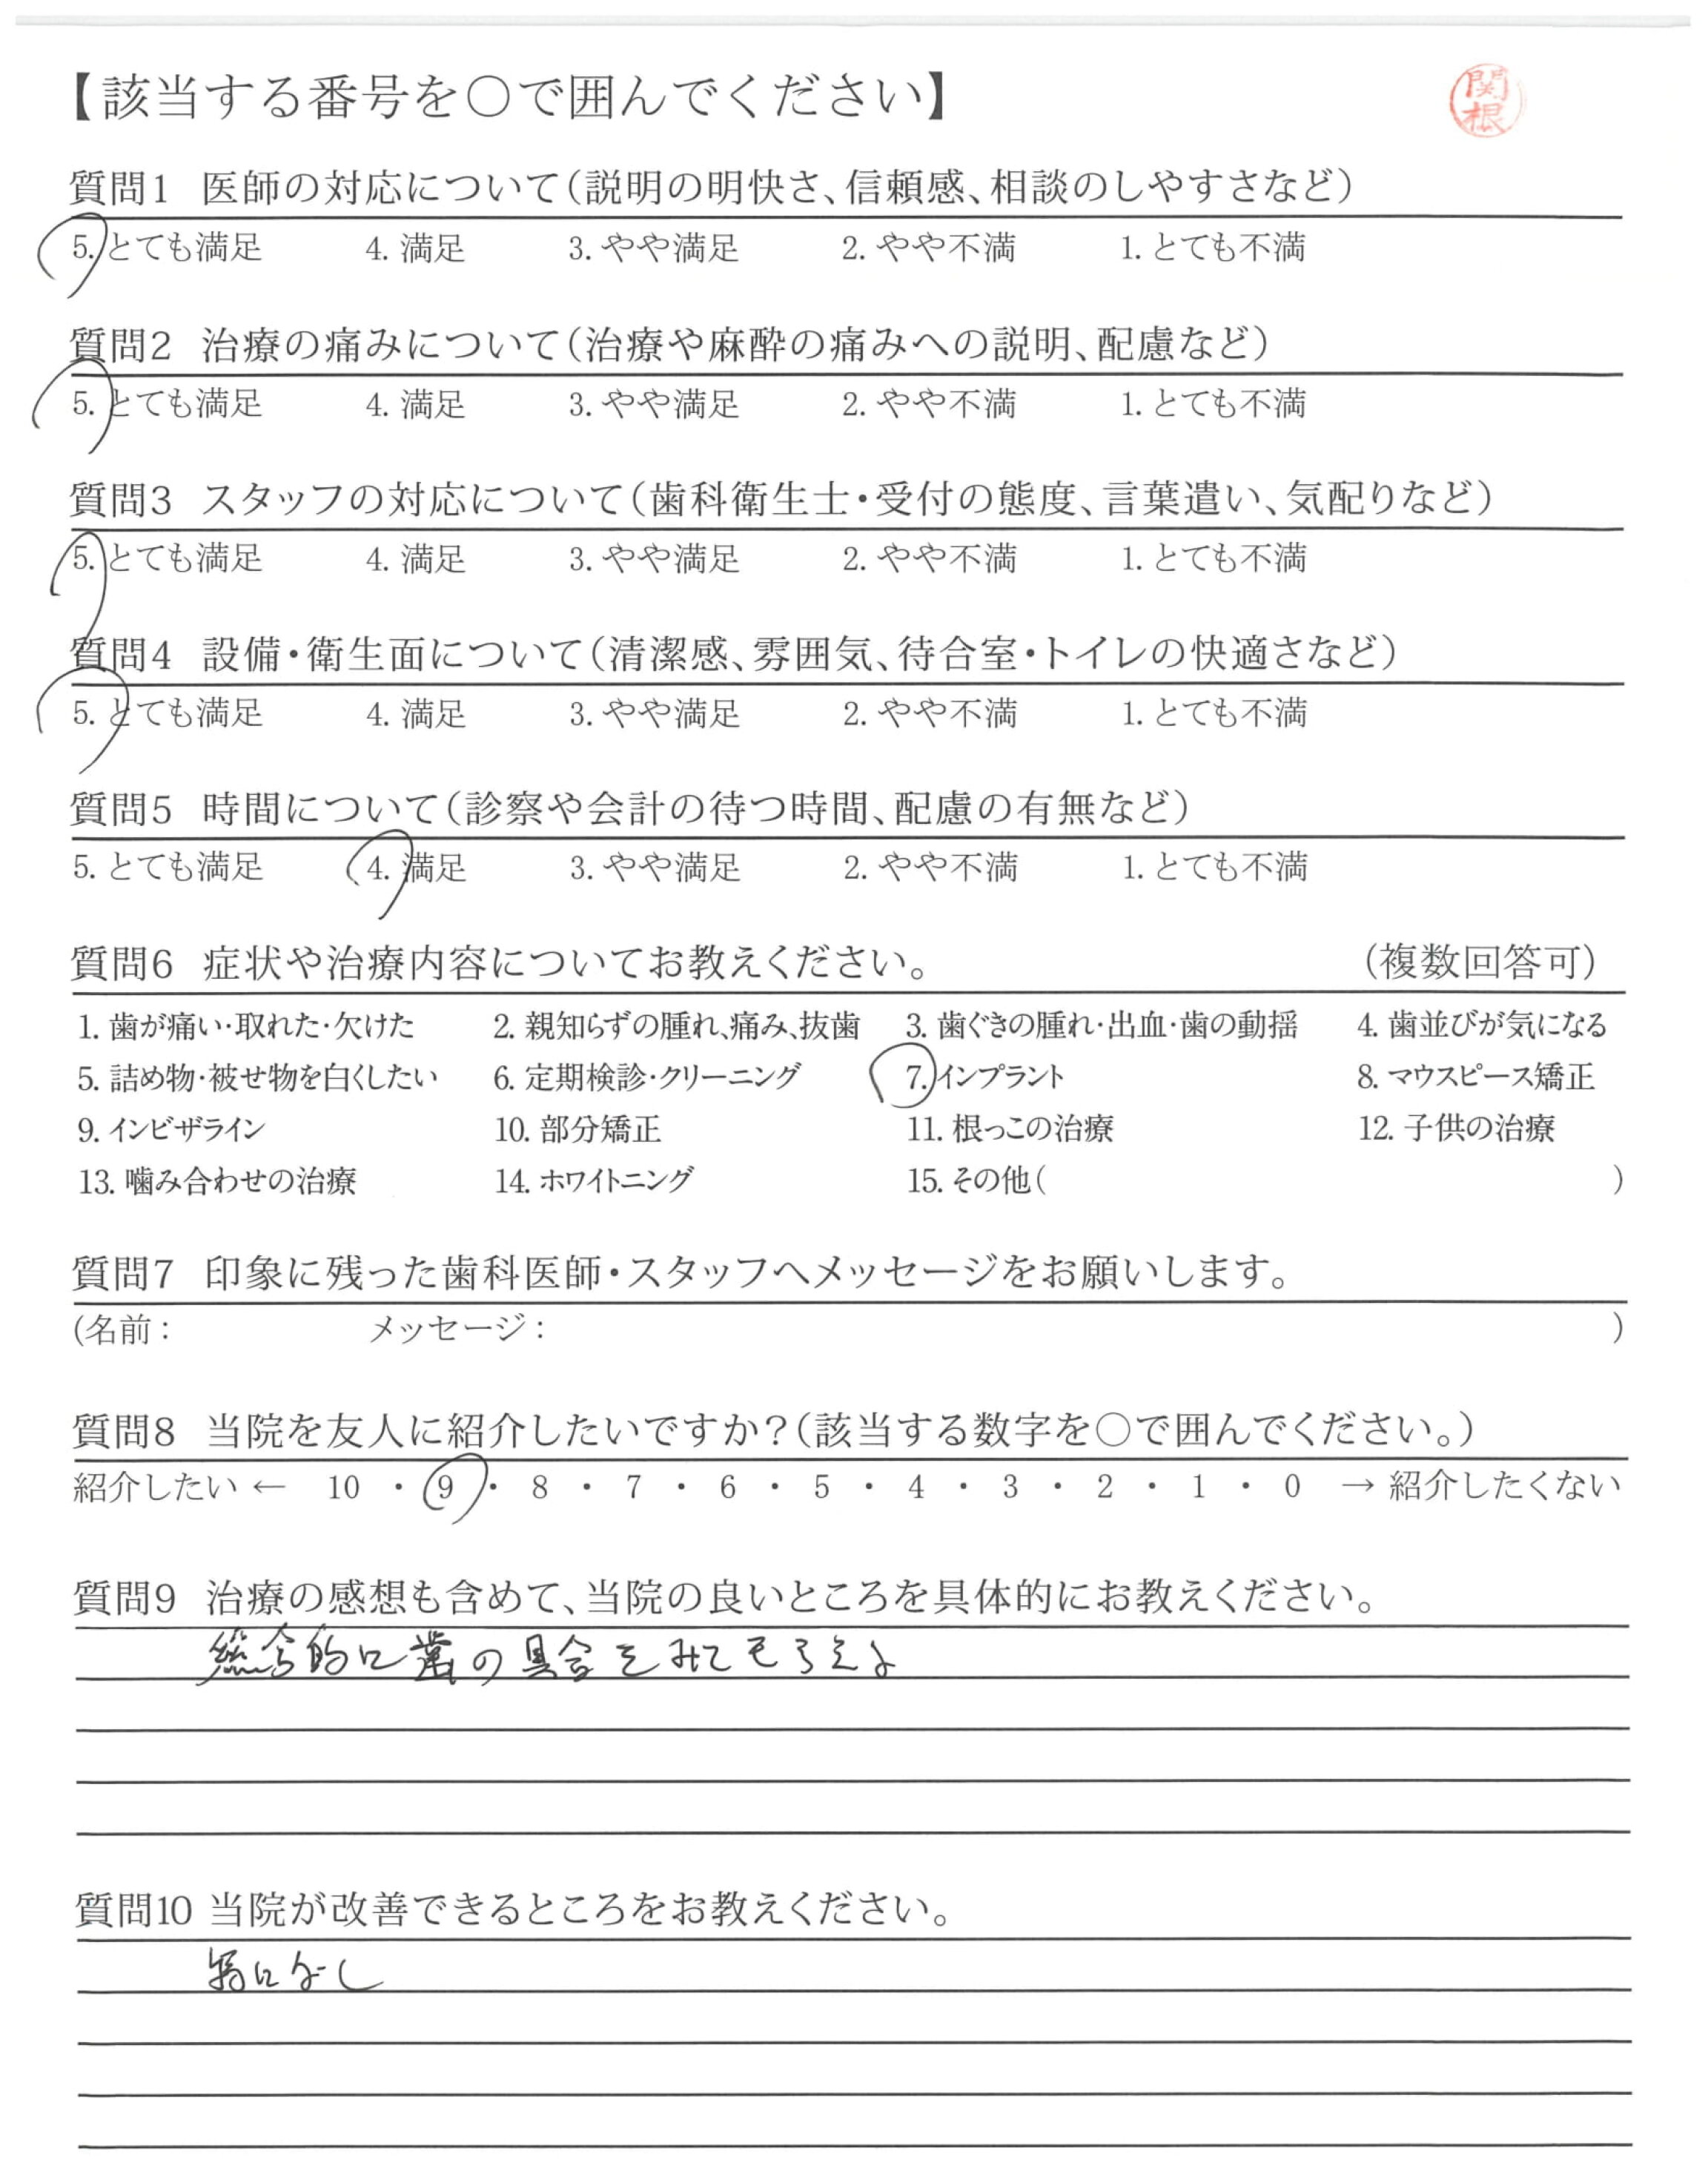 【該当する番号を○で囲んでください】
関根
質問1 医師の対応について（説明の明快さ、信頼感、相談のしやすさなど）
5. とても満足 4. 満足 3. やや満足 2. やや不満 1. とても不満
質問2 治療の痛みについて（治療や麻酔の痛みへの説明、配慮など）
5. とても満足 4. 満足 3. やや満足 2. やや不満 1. とても不満
質問3 スタッフの対応について（歯科衛生士・受付の態度、言葉遣い、気配りなど）
5. とても満足 4. 満足 3. やや満足 2. やや不満 1. とても不満
質問4 設備・衛生面について（清潔感、雰囲気、待合室・トイレの快適さなど）
5. とても満足 4. 満足 3. やや満足 2. やや不満 1. とても不満
質問5 時間について（診察や会計の待つ時間、配慮の有無など）
5. とても満足 4. 満足 3. やや満足 2. やや不満 1. とても不満
質問6 症状や治療内容についてお教えください。 （複数回答可）
1. 歯が痛い・取れた・欠けた 2. 親知らずの腫れ、痛み、抜歯 3. 歯ぐきの腫れ・出血・歯の動揺 4. 歯並びが気になる
5. 詰め物・被せ物を白くしたい 6. 定期検診・クリーニング 7. インプラント 8. マウスピース矯正
9. インビザライン 10. 部分矯正 11. 根っこの治療 12. 子供の治療
13. 噛み合わせの治療 14. ホワイトニング 15. その他（ ）
質問7 印象に残った歯科医師・スタッフへメッセージをお願いします。
(名前： メッセージ： )
質問8 当院を友人に紹介したいですか？（該当する数字を○で囲んでください。）
紹介したい ← 10 ・ 9 ・ 8 ・ 7 ・ 6 ・ 5 ・ 4 ・ 3 ・ 2 ・ 1 ・ 0 → 紹介したくない
質問9 治療の感想も含めて、当院の良いところを具体的にお教えください。
総合的に歯の具合をみてもらえる
質問10 当院が改善できるところをお教えください。
特になし